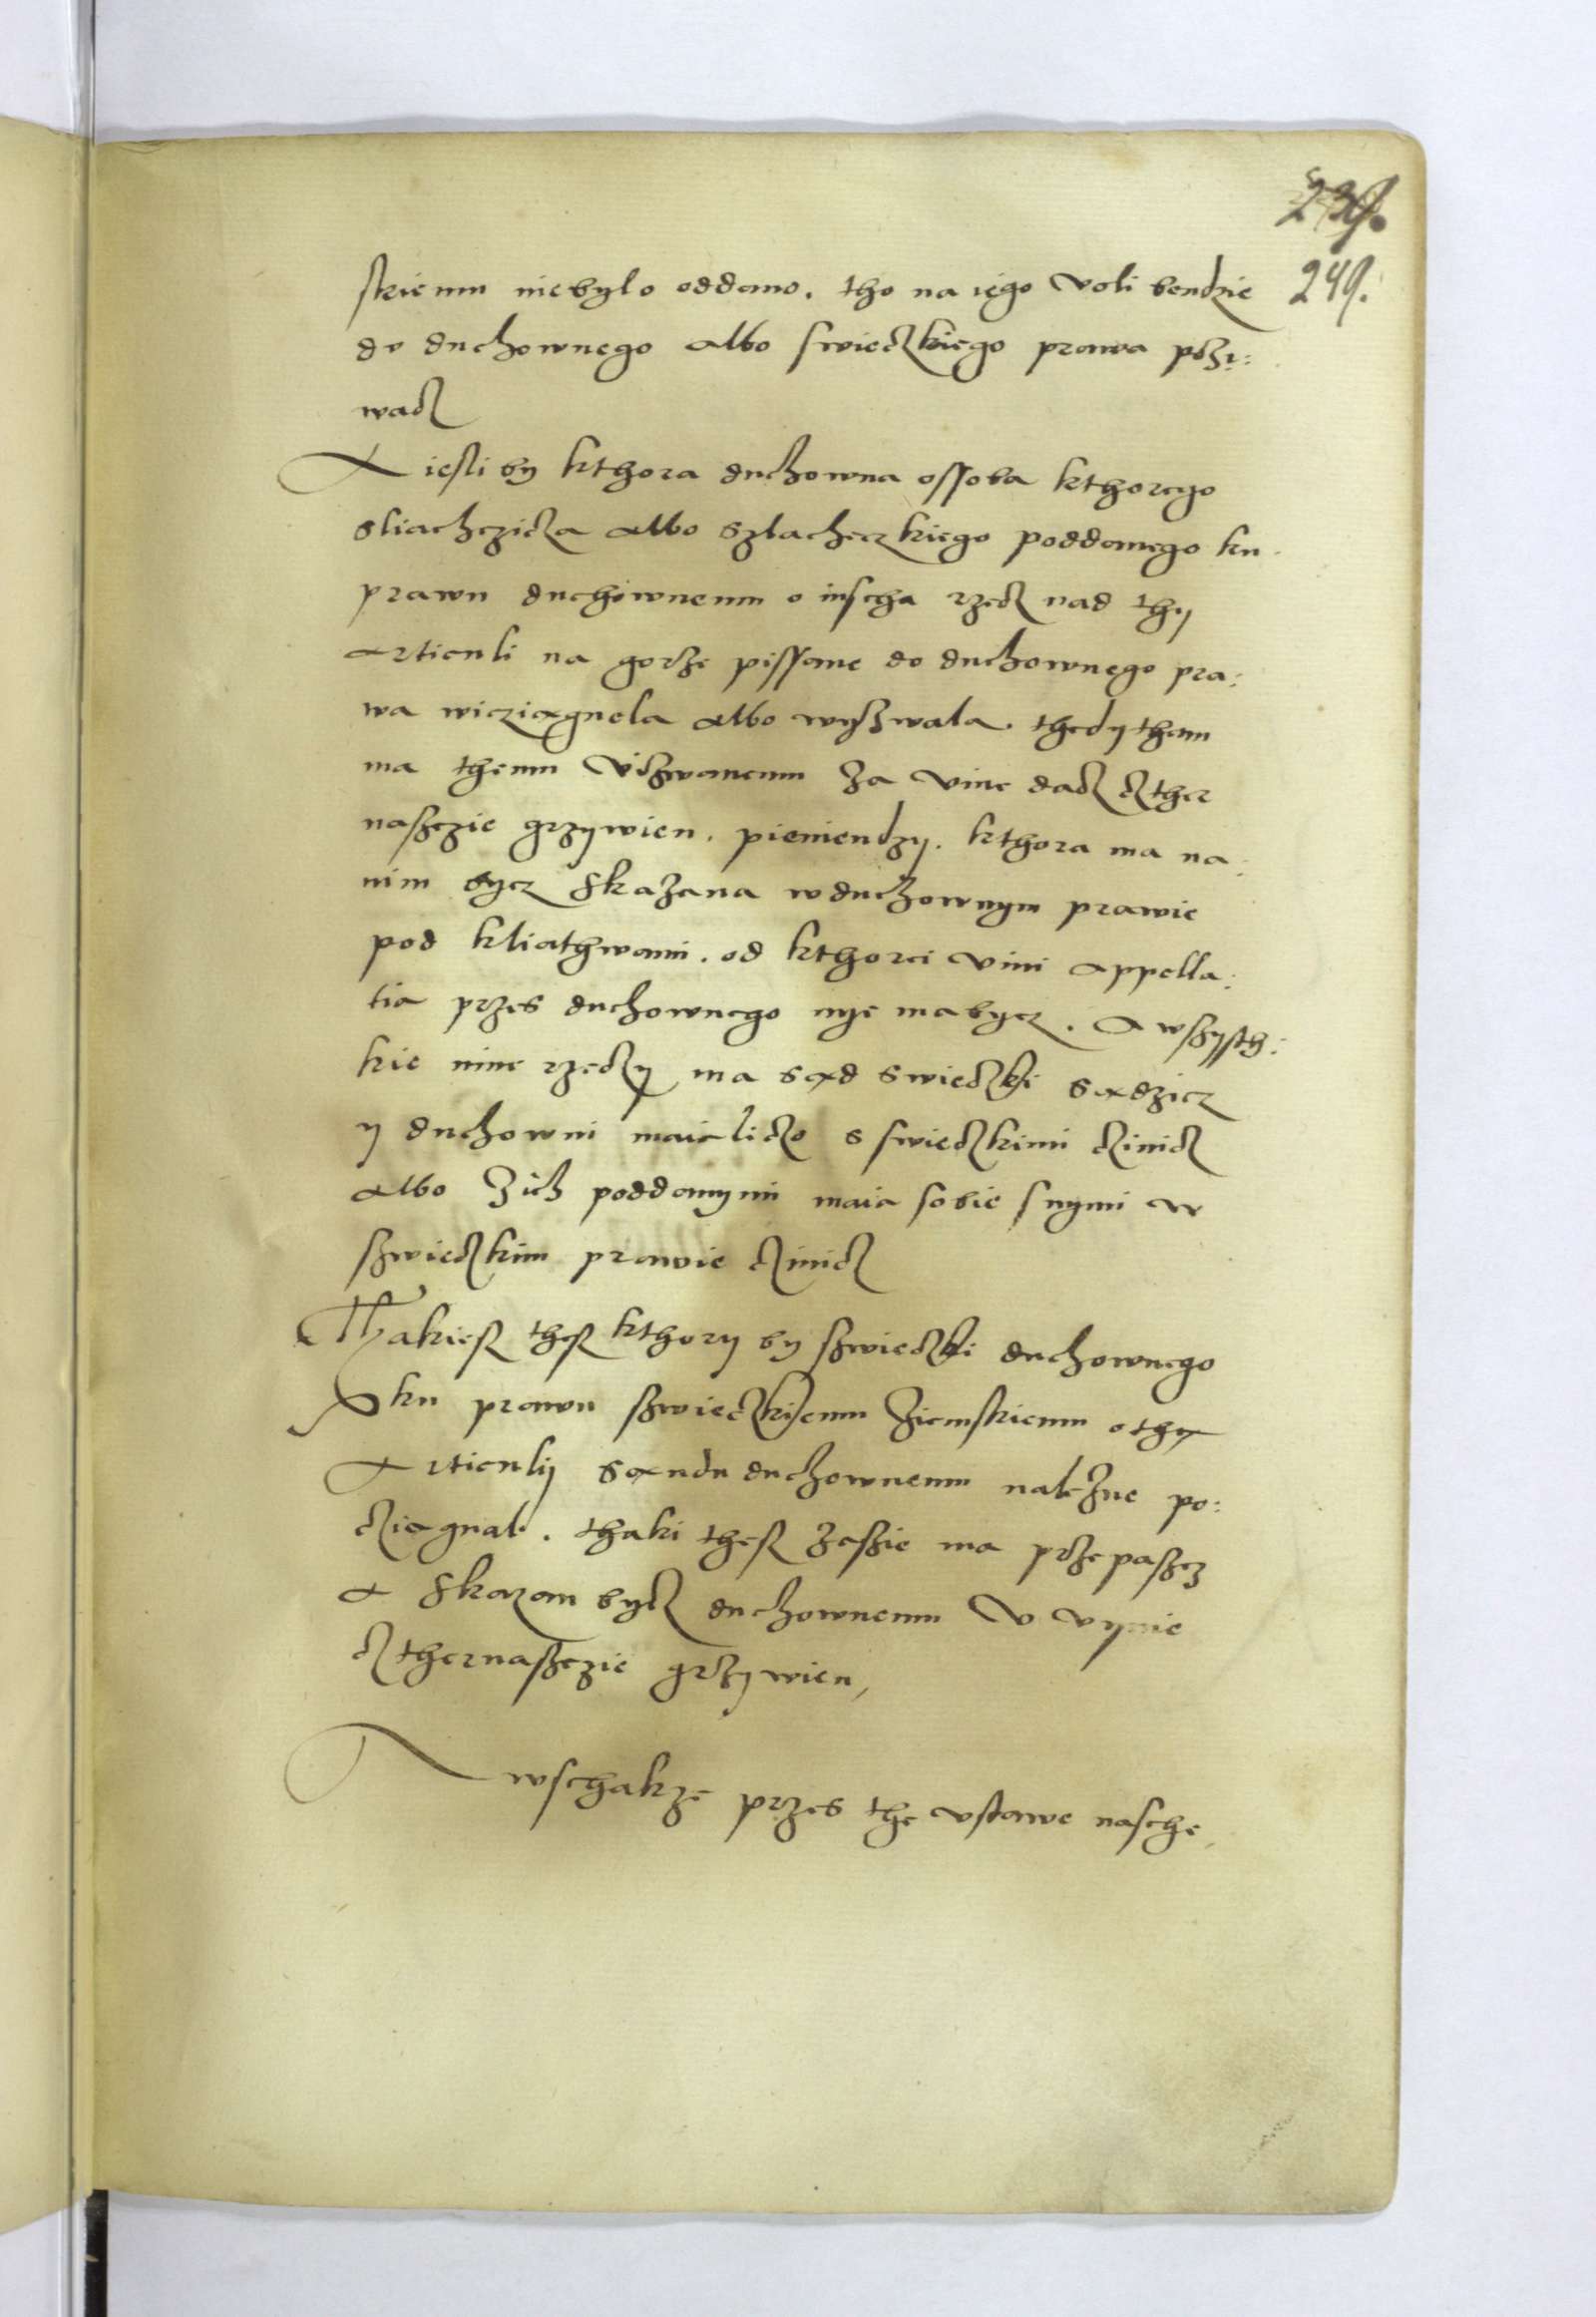 249.
skiemu niebylo oddano. tho na iego voli bendzie
do duchownego albo swieczkiego prawa pozy:
wacz
A iesli by kthora duchowna ossoba kthorego
sliachczicza albo szlacheczkiego poddanego ku
prawu duchownemu o inscha rzecz nad thy
articuli na gorze pissane do duchownego pra:
wa wicziagnela albo wyzwala. thedy tham
ma themu vizwanemu za vine dacz czther
nasczie grzywien. pieniendzy. kthora ma na:
nim bycz skazana w duchownym prawie
pod kliathwami. od kthorei vini appella:
tia przes duchownego nye ma bycz. A wszysth:
kie inne rzeczy ma sad swieczki sadzicz
y duchowni maia liczo s swieczkimi czinicz
albo zich poddanymi maia sobie s nymi w
szwieczkim prawie czinicz
Thakiesz thesz kthory by szwieczki duchownego
ku prawu szwieczkiemu ziemskiemu o thy
Articuly sandu duchownemu nalezne po:
cziagnal. thaki thesz zaszie ma przepasz
a skazan bycz duchownemu v vynie
czthernasczie grzywien,
A wschakze przes the vstawe nasche,